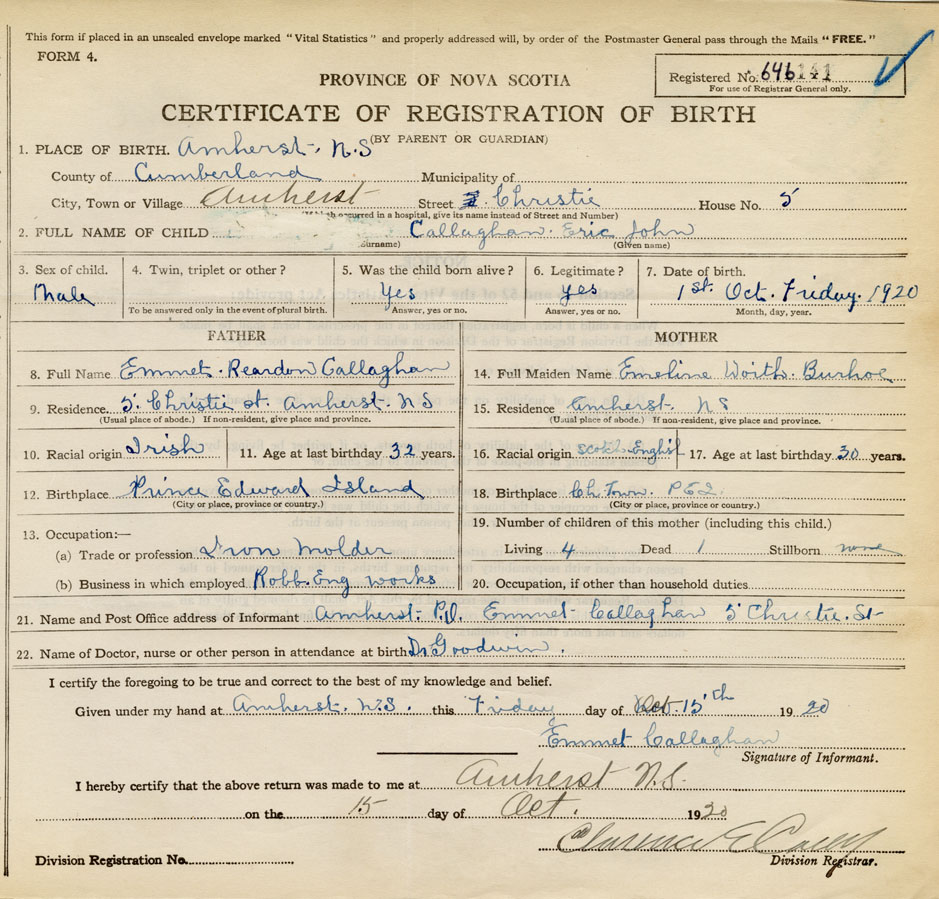 This form if placed in an unsealed envelope marked "Vital Statistics" and properly addressed will, by order of the Postmaster General pass through the Mails "FREE."
FORM 4.
Registered No. 646141
For use of Registrar General only.
PROVINCE OF NOVA SCOTIA
CERTIFICATE OF REGISTRATION OF BIRTH
(BY PARENT OR GUARDIAN)
1. PLACE OF BIRTH. Amherst. N.S
County of Cumberland Municipality of
City, Town or Village Amherst Street Christie House No. 5
occurred in a hospital, give its name instead of Street and Number)
2. FULL NAME OF CHILD Callaghan. Eric John
(Surname) (Given name)
3. Sex of child. 4. Twin, triplet or other? 5. Was the child born alive? 6. Legitimate? 7. Date of birth.
Male Yes yes 1st. Oct. Friday. 1920
To be answered only in the event of plural birth. Answer, yes or no. Answer, yes or no. Month, day, year.
FATHER MOTHER
8. Full Name Emmet. Reardon Callaghan 14. Full Maiden Name Emeline Worth. Burhoe
9. Residence. 5. Christie st. Amherst. NS 15. Residence Amherst. NS
(Usual place of abode.) If non-resident, give place and province. (Usual place of abode.) If non-resident, give place and province.
10. Racial origin Irish 11. Age at last birthday 32 years. 16. Racial origin Scotch English 17. Age at last birthday 30 years.
12. Birthplace Prince Edward Island 18. Birthplace Ch. Town. P E I.
(City or place, province or country.) (City or place, province or country.)
13. Occupation:— 19. Number of children of this mother (including this child.)
(a) Trade or profession Iron Molder Living 4 Dead 1 Stillborn none
(b) Business in which employed Robb. Eng works 20. Occupation, if other than household duties
21. Name and Post Office address of Informant Amherst. P.O. Emmet Callaghan 5 Christie. St
22. Name of Doctor, nurse or other person in attendance at birth Dr Goodwin.
I certify the foregoing to be true and correct to the best of my knowledge and belief.
Given under my hand at Amherst. N.S. this Friday day of Oct. 15th 1920
Emmet Callaghan
Signature of Informant.
I hereby certify that the above return was made to me at Amherst N.S.
on the 15 day of Oct. 1920
Clarence E
Division Registration No. Division Registrar.